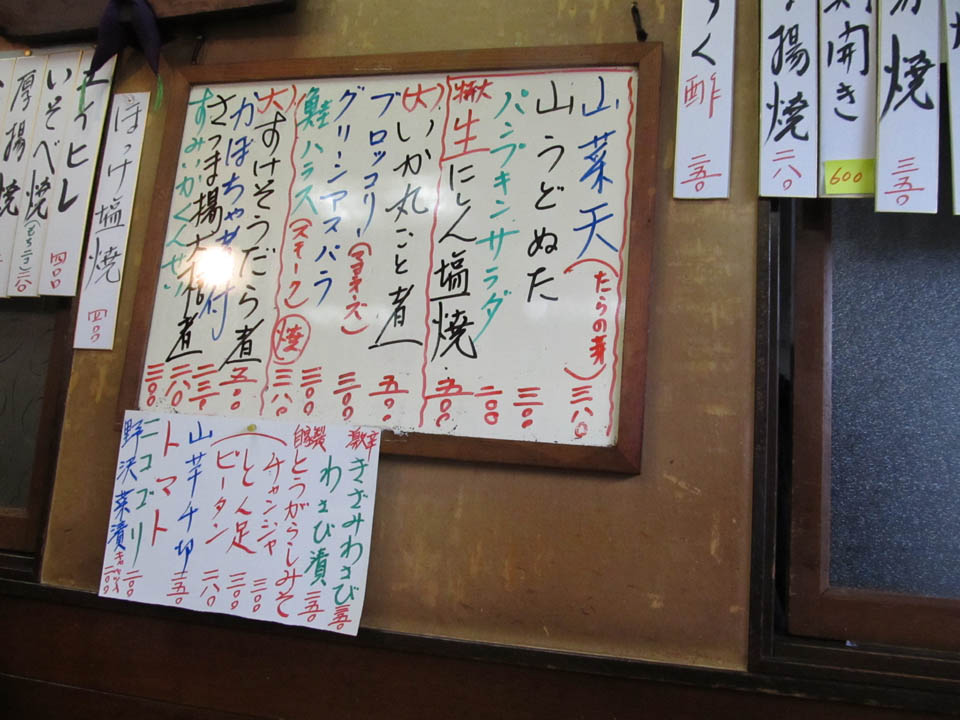 酢
三五〇
揚焼
二八〇
開き
600
焼
三五〇
山菜天(たらの芽)三八〇
山うどぬた 三八〇
パンプキンサラダ 二〇〇
特大 生にしん塩焼 五〇〇
(大)いか丸ごと煮 五〇〇
ブロッコリー(マヨネーズ)三〇〇
グリーンアスパラ 三〇〇
鮭ハラス(スモーク)焼 三八〇
(大)すけそうだら煮 五〇〇
かぼちゃ煮付
さつま揚大根煮
すみいかくんせい 三〇〇
ほっけ塩焼 四〇〇
エイヒレ 四〇〇
いそべ焼(もち二コ)
厚揚焼
激辛 きざみわさび 三五〇
わさび漬 三五〇
自家製 とうがらしみそ
チャンジャ 三〇〇
とん足 三〇〇
ピータン 二八〇
山芋千切 三五〇
トマト
ニコゴリ 二〇〇
野沢菜漬 二〇〇